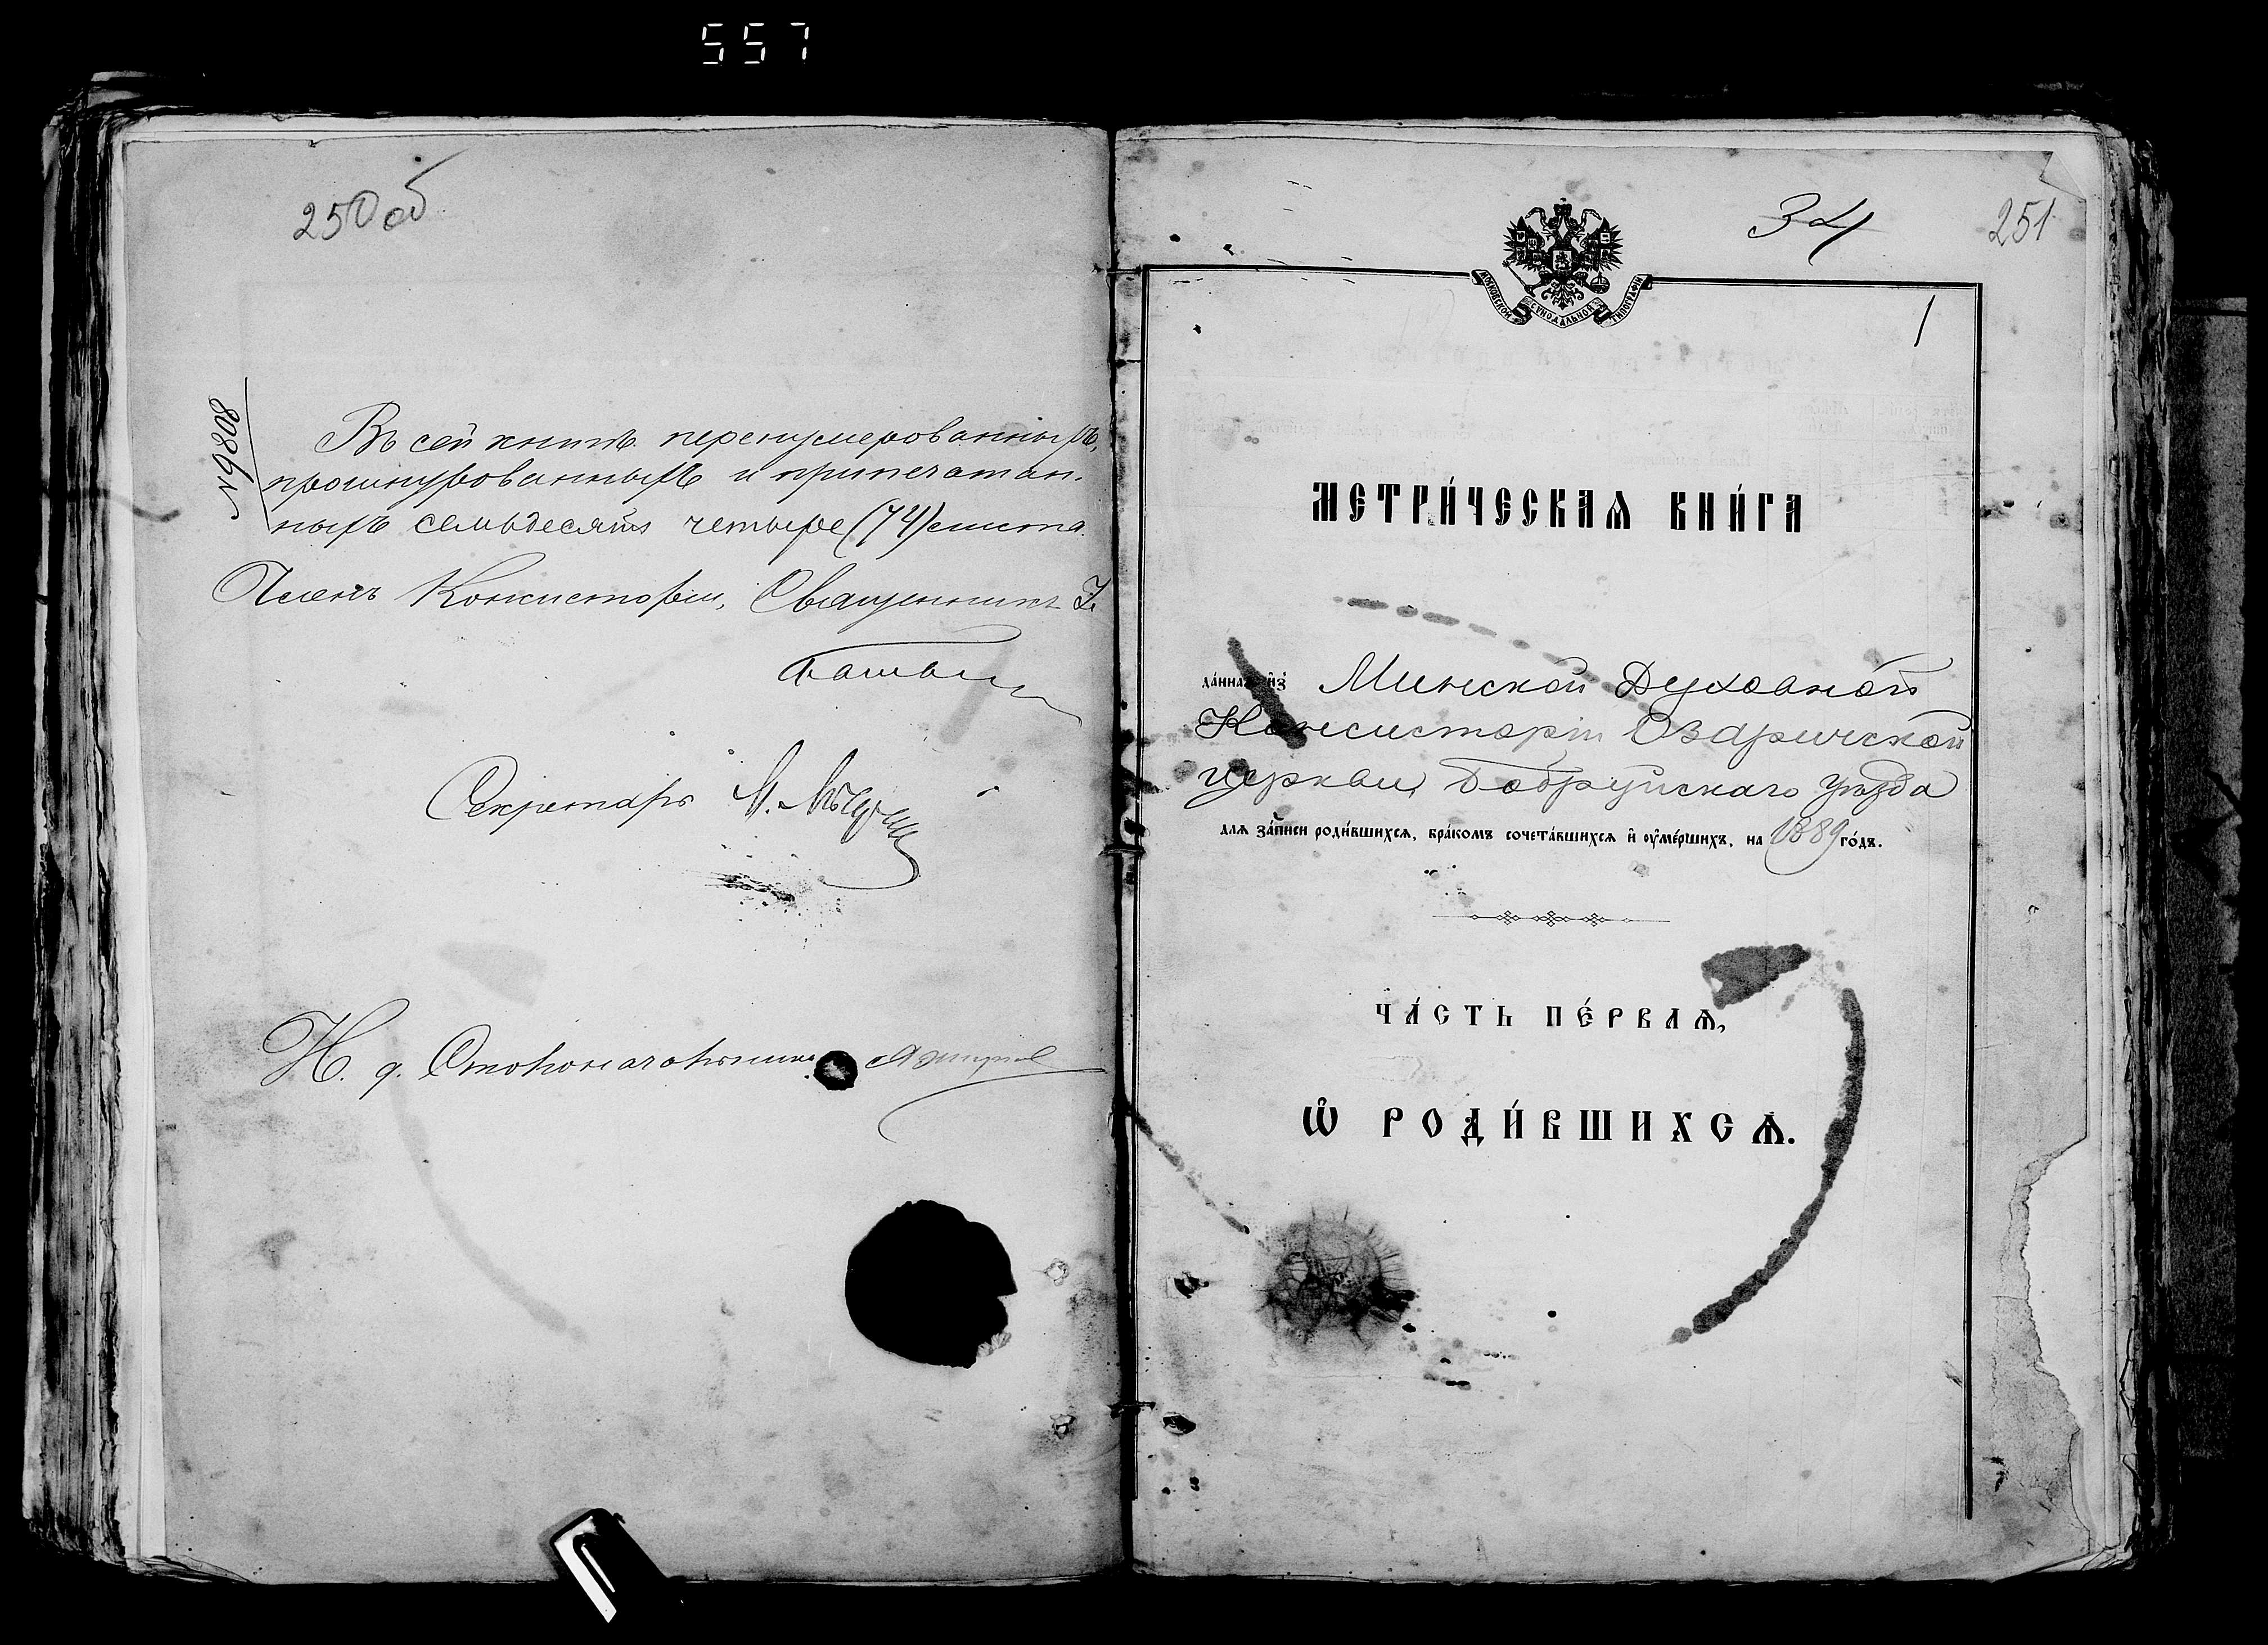 557
250 об
№ 9808
Въ сей книгѣ перенумерованныхъ,
прошнурованныхъ и припечатан-
ныхъ семьдесятъ четыре (74) листа.
Членъ Консисторіи, Священникъ
Секретарь М.
И. д. Столоначальника
34
251
МОСКОВСКОЙ СѴНОДАЛЬНОЙ ТИПОГРАФІИ
1
МЕТРИ́ЧЕСКАѦ КНИ́ГА
да́ннаѧ и҆зъ Минской Духовной
Консисторіи Озаричской
церкви, Бобруйскаго уѣзда
для за́писи роди́вшихсѧ, бра́комъ сочета́вшихсѧ и҆ ᲂу҆ме́ршихъ, на 1889 го́дъ.
ЧА́СТЬ ПЕ́РВАѦ,
Ѡ҆ РОДИ́ВШИХСѦ.